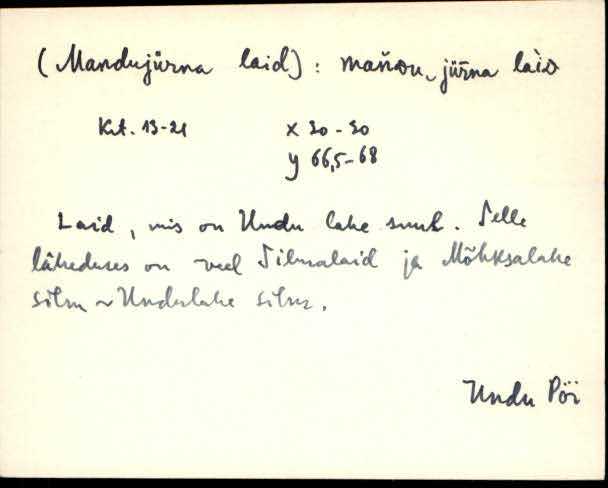 (Mandujürna laid) : mańᴅu‿jürna làiᴅ
Krt. 13-21 x 30-50
y 66,5-68
Laid, mis on Undu lahe suul. Selle
läheduses on veel Silmalaid ja Mõhksalahe
silm ~ Undulahe silm.
Undu Pöi